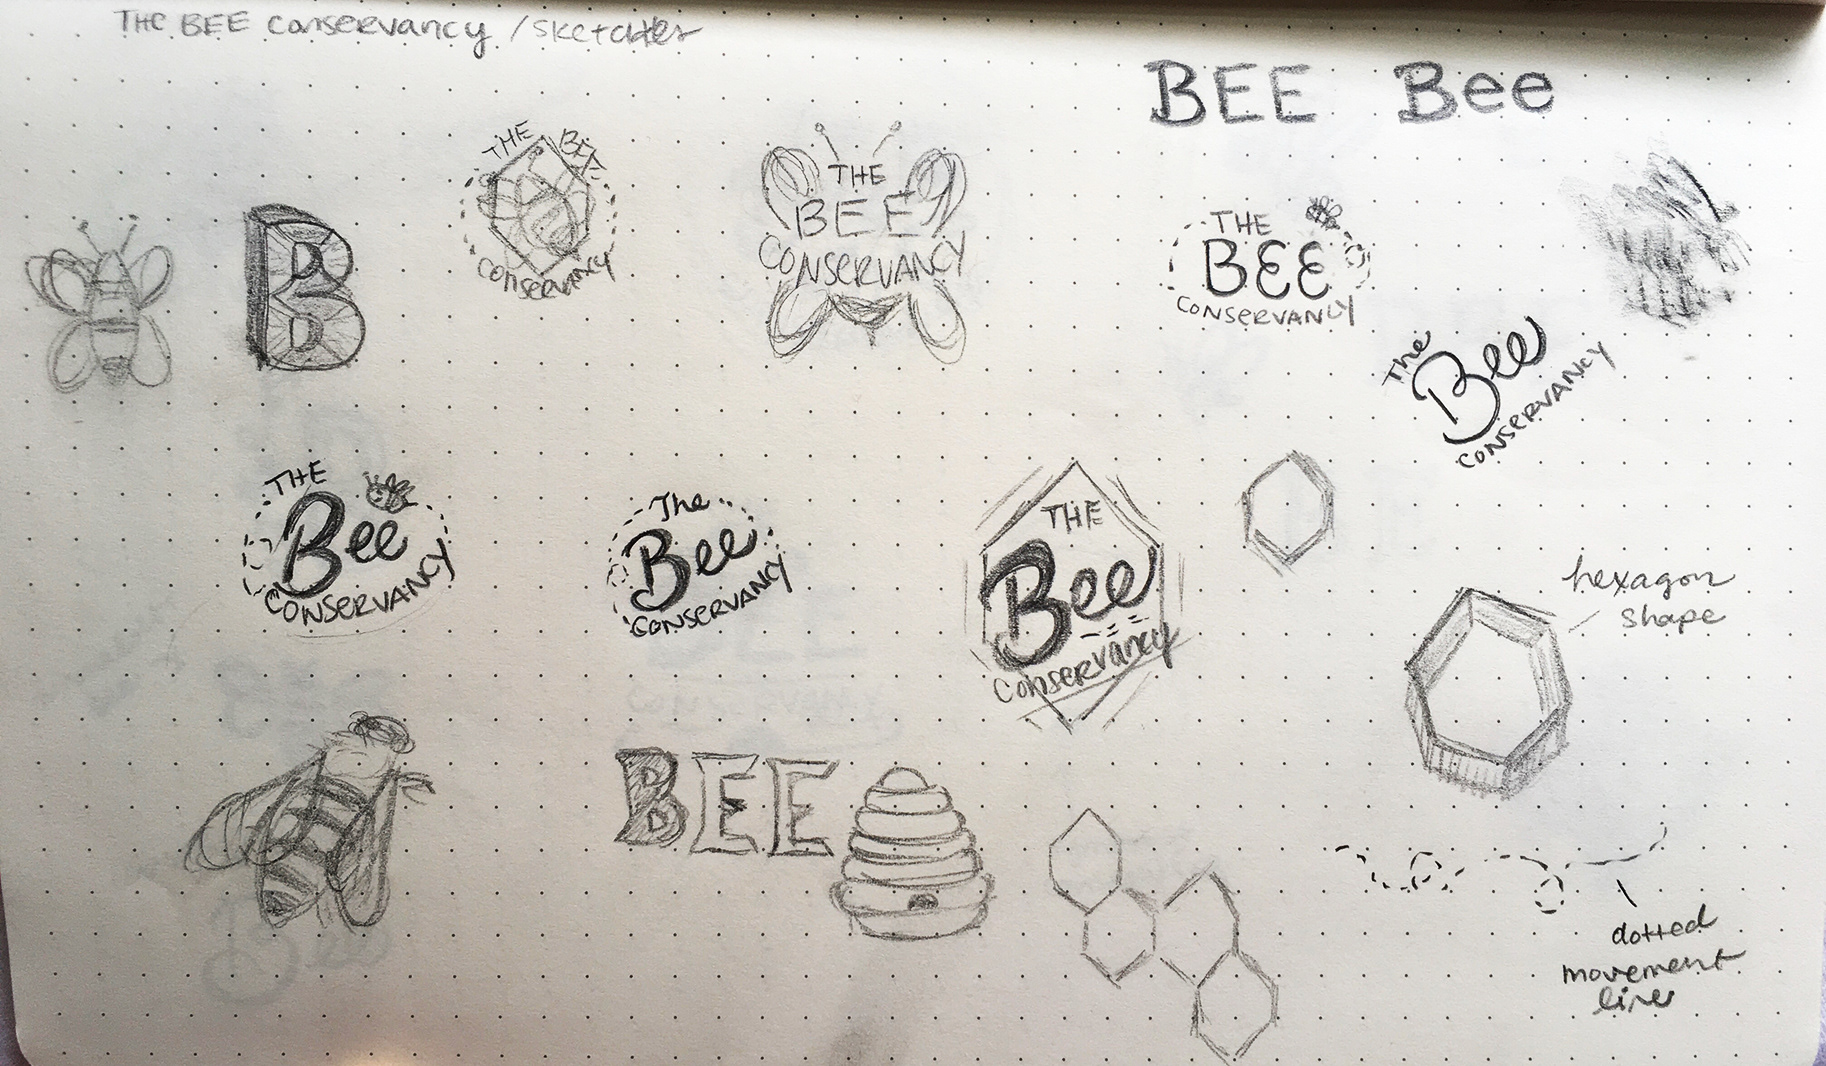 THE BEE conservancy / sketches
BEE Bee
B
THE BEE
conservancy
THE
BEE
CONSERVANCY
THE
BEE
CONSERVANCY
The
Bee
CONSERVANCY
THE
Bee
CONSERVANCY
The
Bee
CONSERVANCY
THE
Bee
Conservancy
hexagon
shape
BEE
dotted
movement
lines